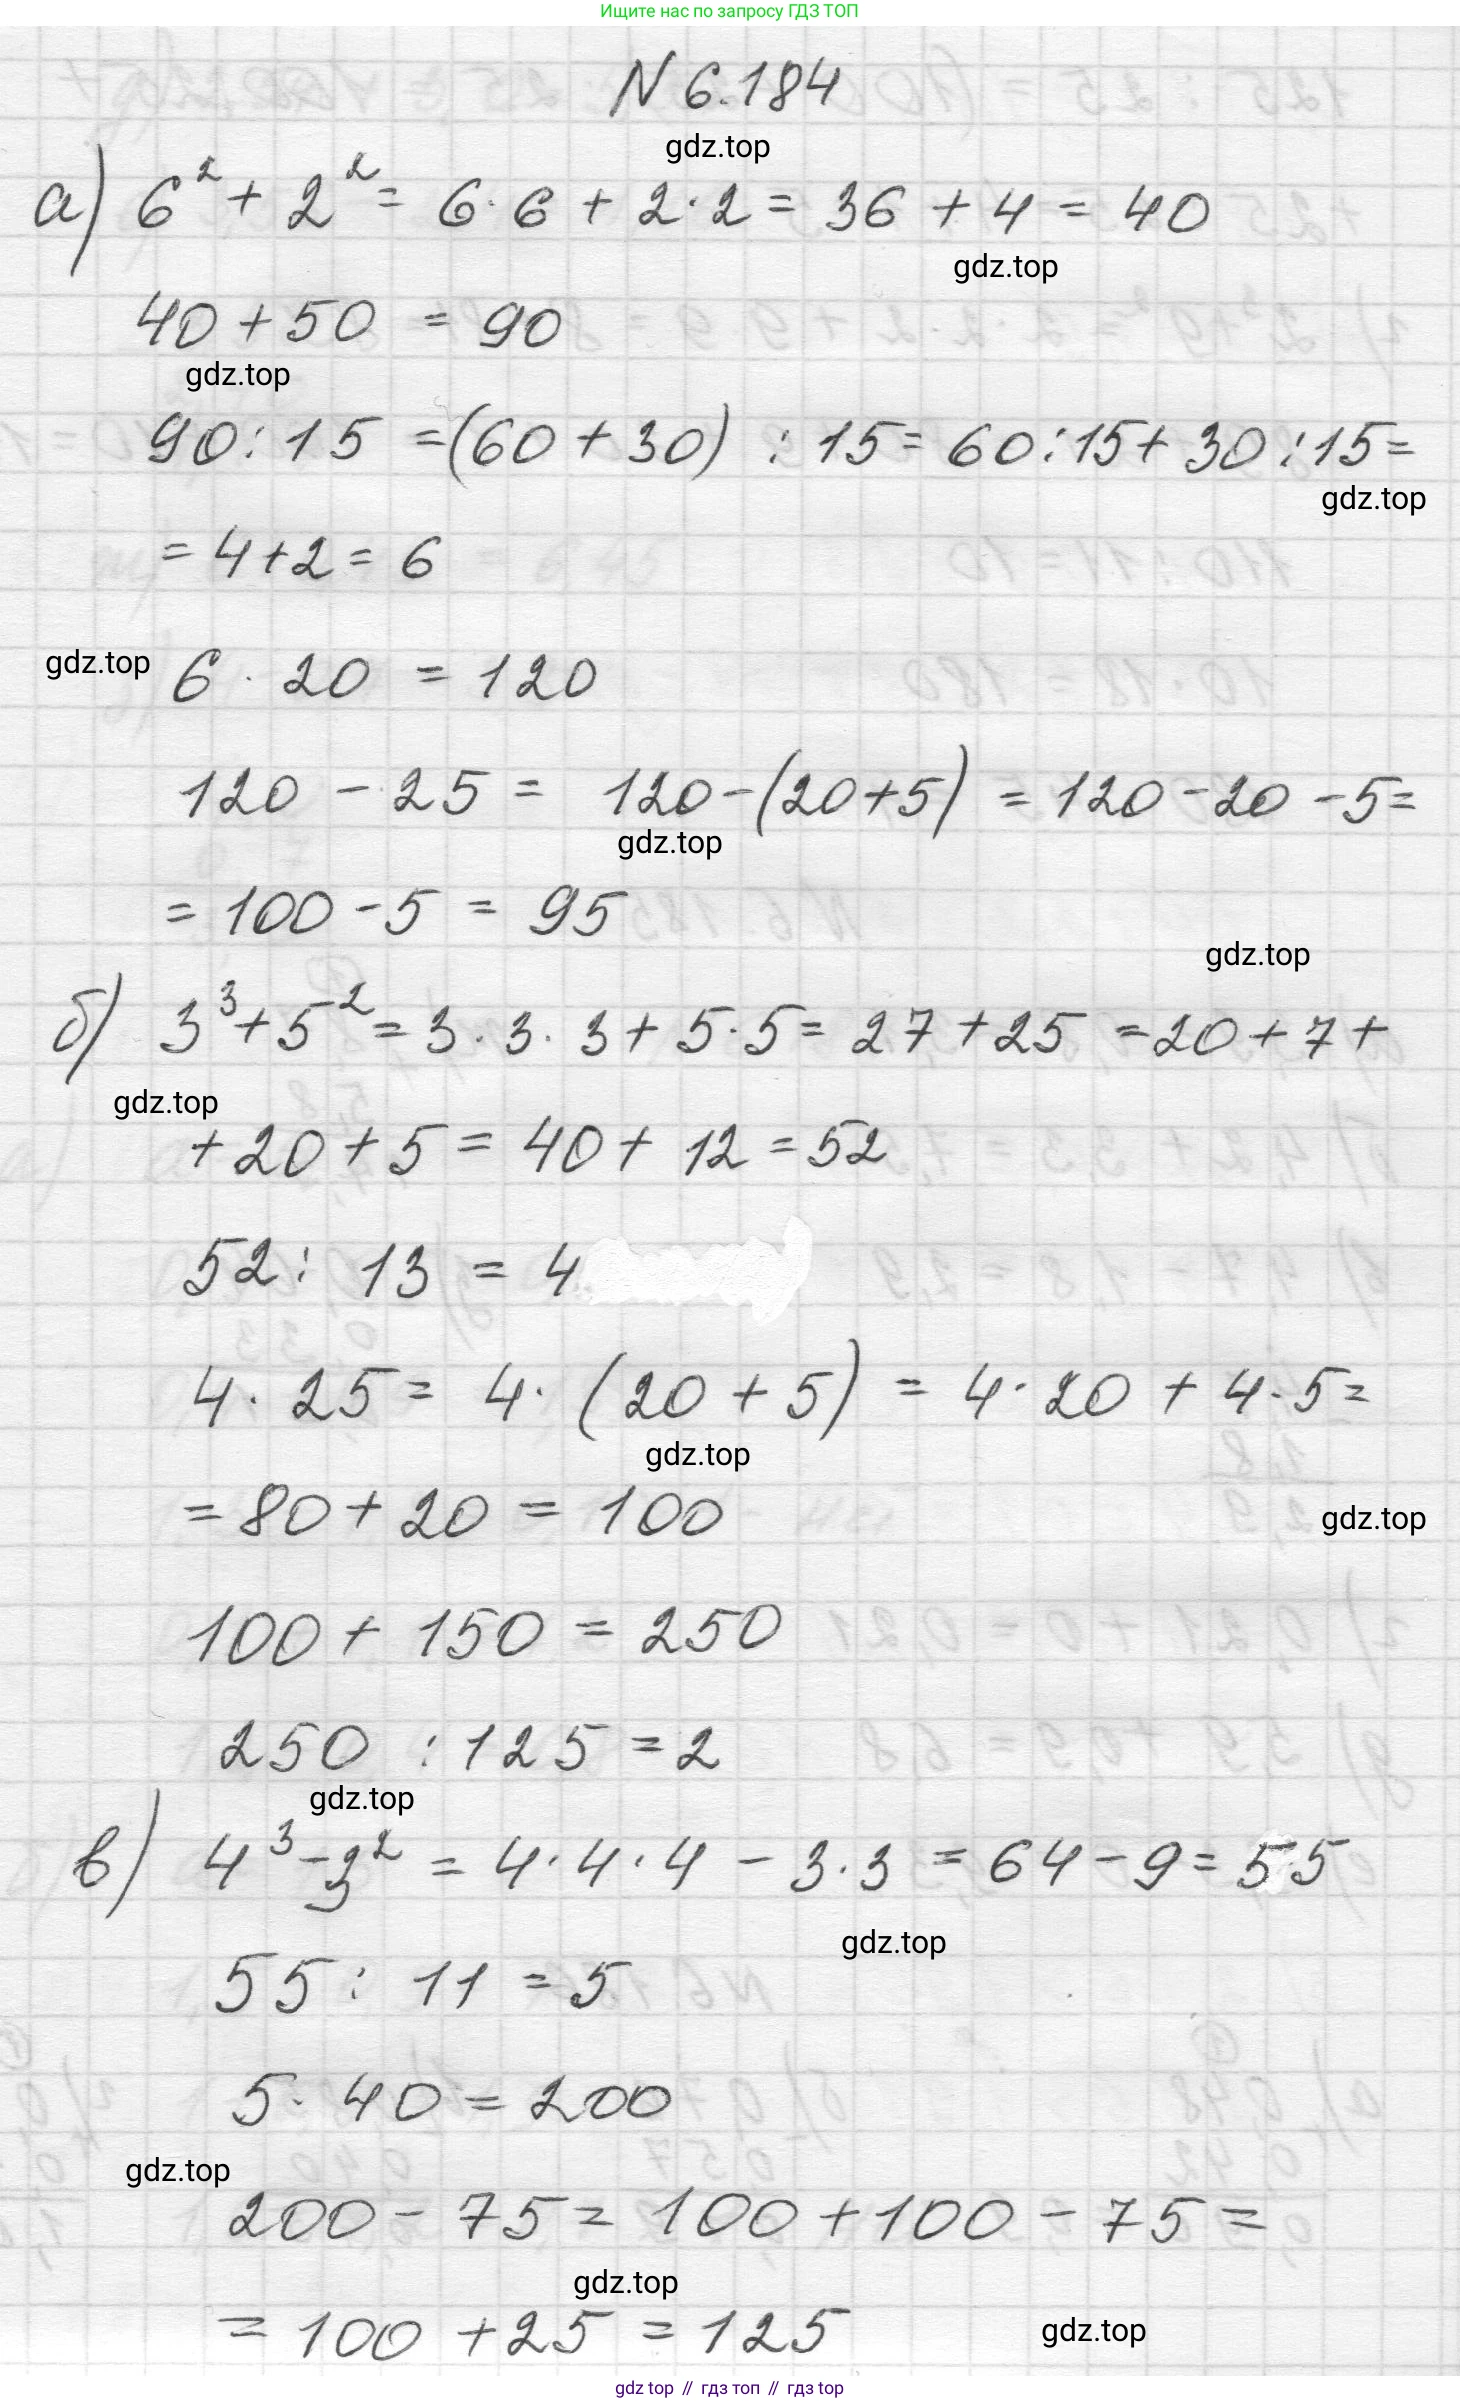 Ищите нас по запросу ГДЗ ТОП
N 6.184
gdz.top
а) 6² + 2² = 6 · 6 + 2 · 2 = 36 + 4 = 40
gdz.top
40 + 50 = 90
gdz.top
90 : 15 = (60 + 30) : 15 = 60 : 15 + 30 : 15 =
gdz.top
= 4 + 2 = 6
gdz.top
6 · 20 = 120
120 - 25 = 120 - (20 + 5) = 120 - 20 - 5 =
gdz.top
= 100 - 5 = 95
gdz.top
б) 3³ + 5² = 3 · 3 · 3 + 5 · 5 = 27 + 25 = 20 + 7 +
gdz.top
+ 20 + 5 = 40 + 12 = 52
52 : 13 = 4
4 · 25 = 4 · (20 + 5) = 4 · 20 + 4 · 5 =
gdz.top
= 80 + 20 = 100
gdz.top
100 + 150 = 250
250 : 125 = 2
gdz.top
в) 4³ - 3² = 4 · 4 · 4 - 3 · 3 = 64 - 9 = 55
gdz.top
55 : 11 = 5
5 · 40 = 200
gdz.top
200 - 75 = 100 + 100 - 75 =
gdz.top
= 100 + 25 = 125
gdz.top
gdz top // гдз топ // гдз top